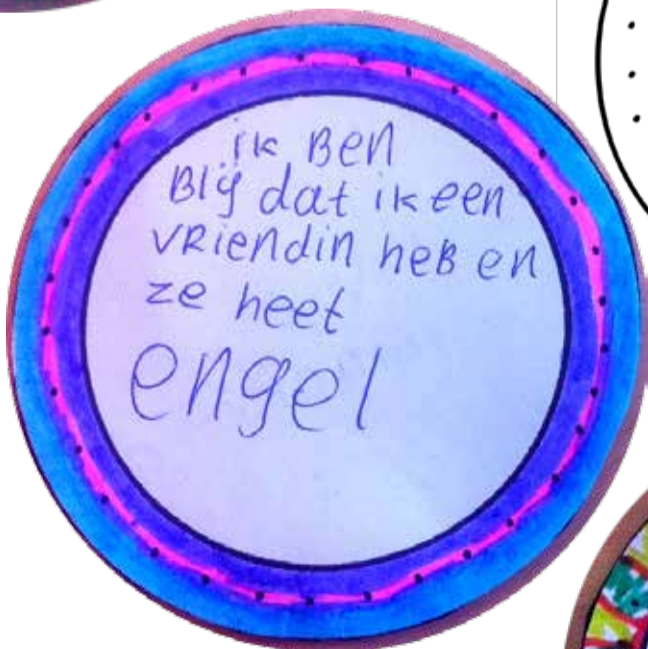 ik Ben
Blij dat ik een
vriendin heB en
ze heet
engel